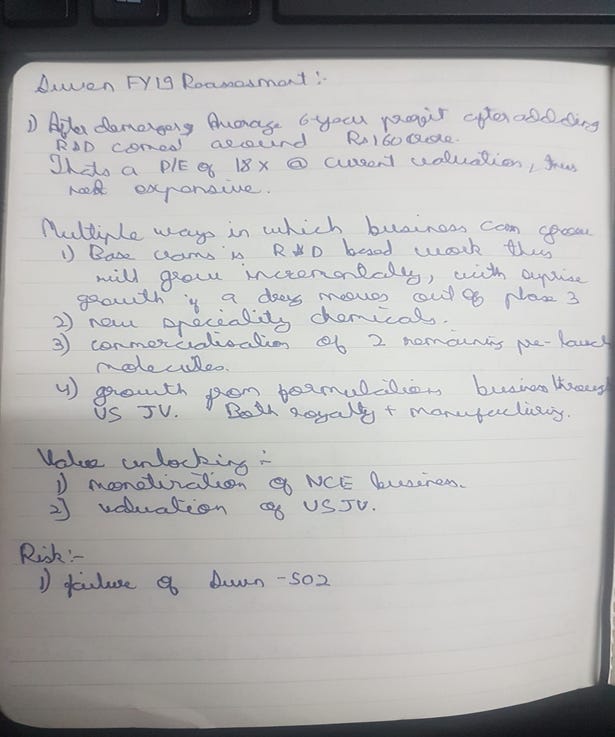 Suven FY19 Reassasment :-
1) After demerger, Average 6-year profit after addding
R&D comes around Rs 160 crore.
Thats a P/E of 18x @ current valuation, thus
not expensive.
Multiple ways in which business can grow
1) Base crams is R&D based work thus
will grow incrementaly, with suprise
growth if a drug moves out of phase 3
2) new speciality chemicals.
3) commercialisation of 2 remaining pre-launch
molecules.
4) growth from formulations business through
US JV. Both royalty + manufacturing.
Value unlocking :-
1) monetiration of NCE business.
2) valuation of US JV.
Risk :-
1) failure of Suvn -502